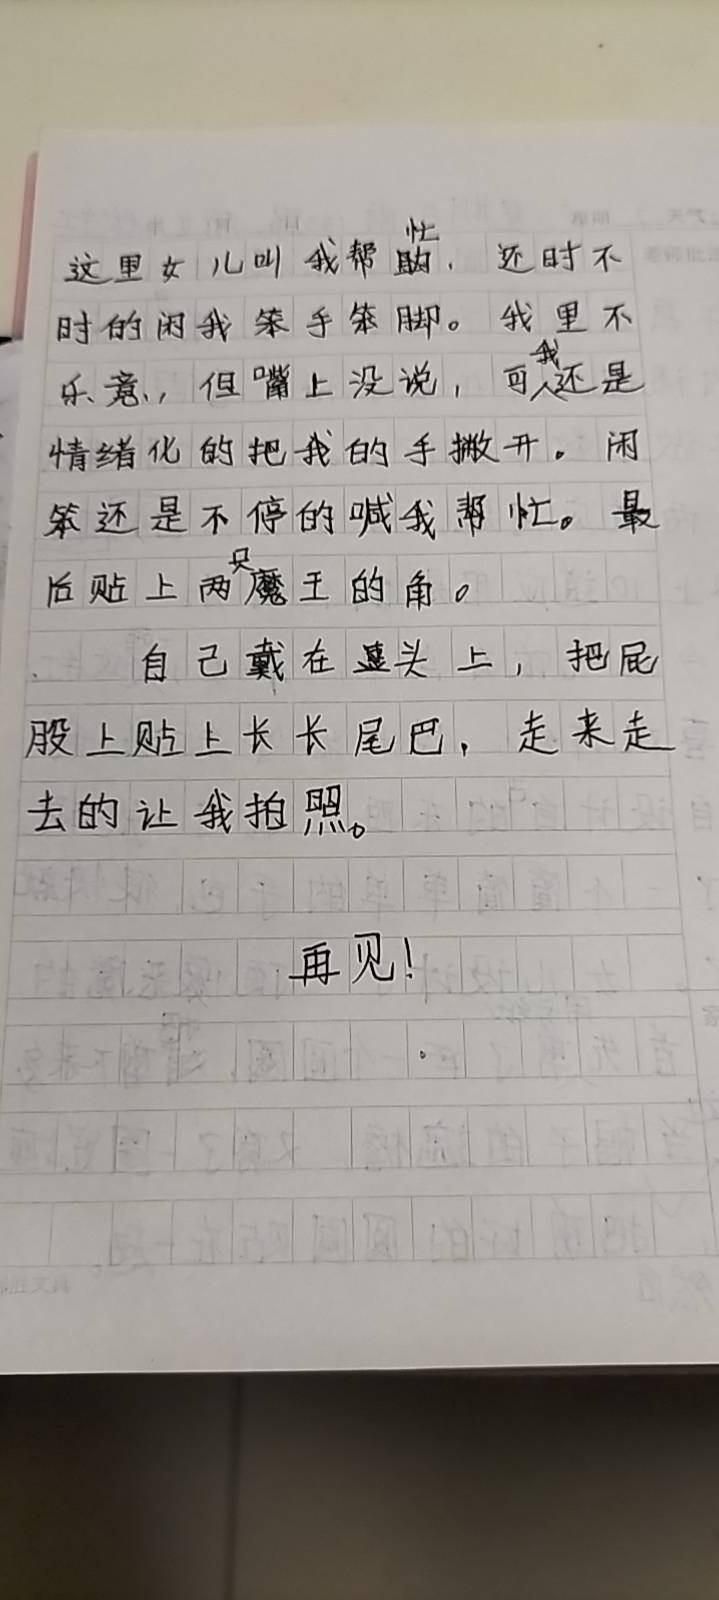 这里女儿叫我帮忙，还时不
时的闲我笨手笨脚。我里不
乐意，但嘴上没说，可我还是
情绪化的把我的手撇开。闲
笨还是不停的喊我帮忙。最
后贴上两只魔王的角。
自己戴在头上，把屁
股上贴上长长尾巴，走来走
去的让我拍照。
再见！